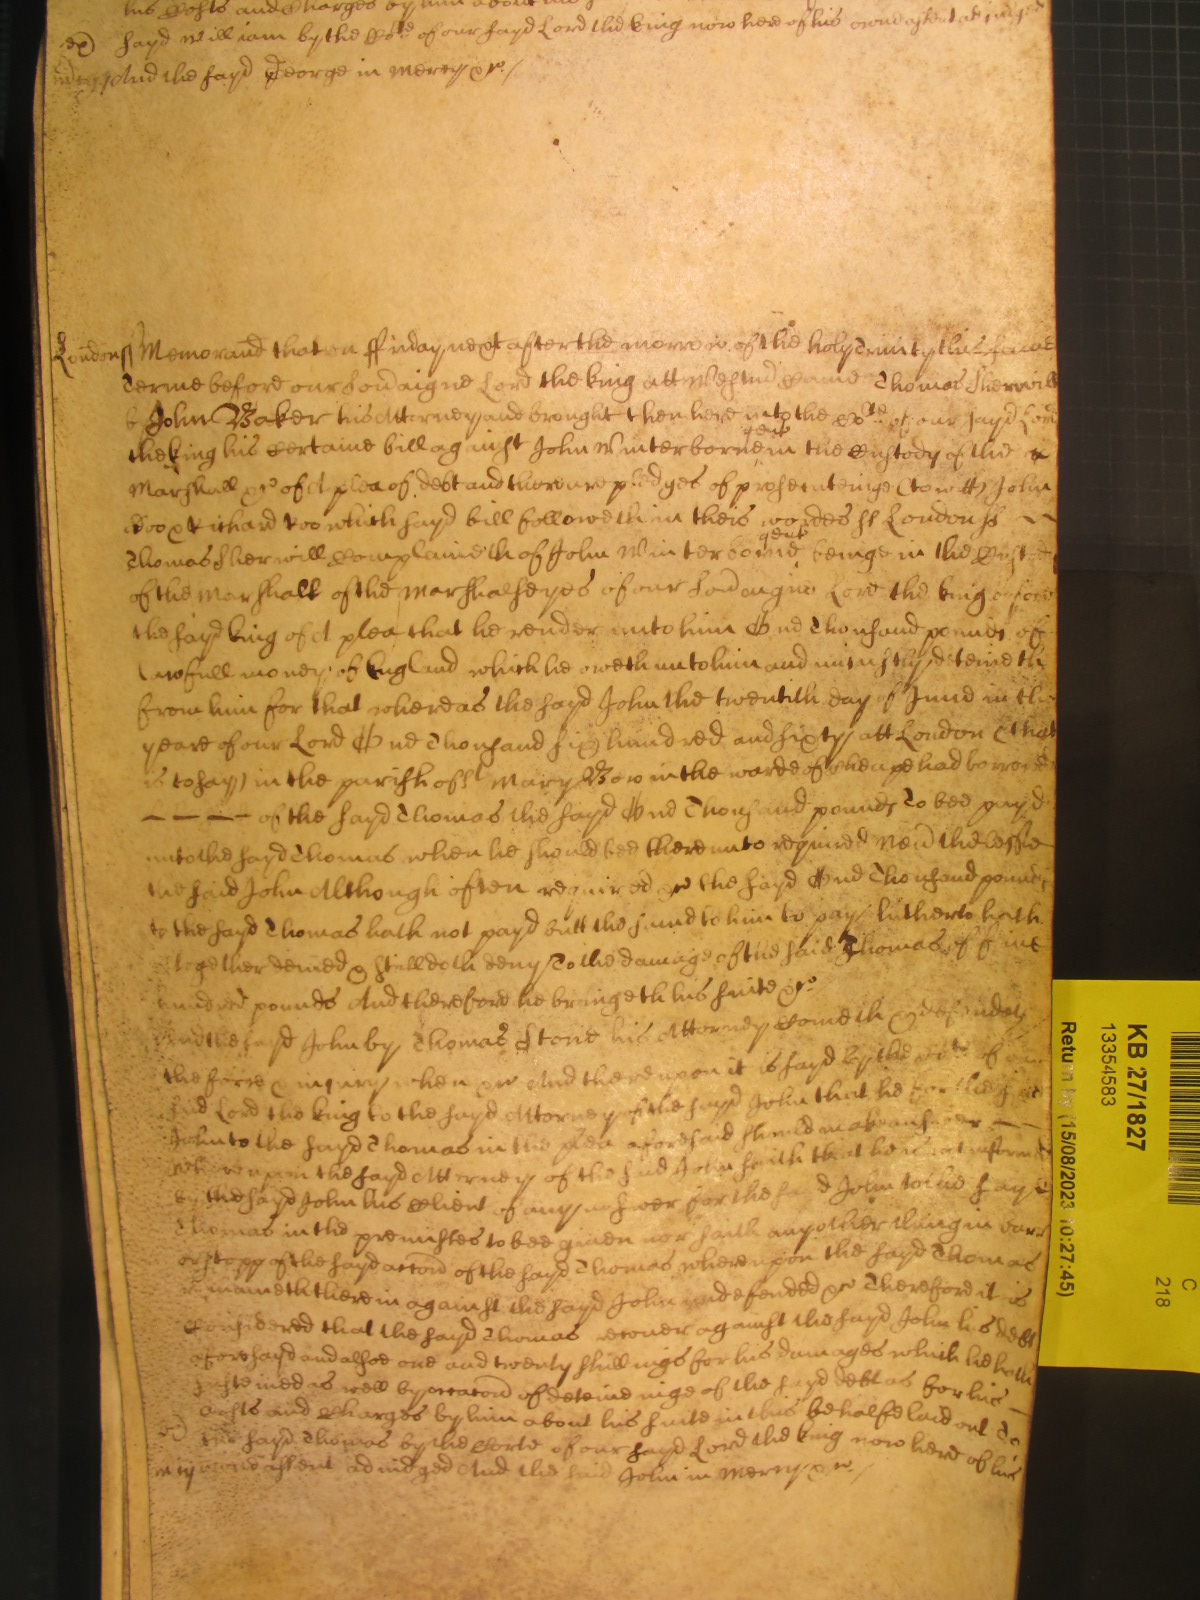 his Costs and Charges by him about his
sayd William by the Corte of our sayd Lord the king now here of his owne assent adjudged
And the sayd George in Mercy &c /
London ss Memorand that on ffriday next after the morrow of the holy Trinity this same
Terme before our Soveraigne Lord the king att Westmr Came Thomas Sherwill
by John Baker his Attorney and brought then here into the Cort of our sayd Lord
the king his Certaine bill against John Winterborne gent in the Custody of the
Marshall &c of A plea of debt and there are pledges of prosecuteinge (to witt) John
Doo & Richard Roo which sayd bill followeth in theis wordes ss London ss
Thomas Sherwill Complaineth of John Winterborne gent beinge in the Custody
of the Marshall of the Marshalseyes of our Soveraigne Lord the king before
the sayd king of A plea that he render unto him One Thousand pounds of
lawfull money of England which he oweth unto him and uniustly deteineth
from him for that whereas the sayd John the twentith day of June in the
yeare of our Lord One Thousand six hundred and sixty att London (that
is to say) in the parish of St Mary Bow in the warde of Cheape had borrowed
---- of the sayd Thomas the sayd One Thousand pounds To bee payd
unto the sayd Thomas when he should bee thereunto required Neverthelesse
the said John Although often required &c the sayd One Thousand pounds
to the sayd Thomas hath not payd butt the same to him to pay hitherto hath
altogether denied & still doth deny To the damage of the said Thomas of five
hundred pounds And therefore he bringeth his suite &c
And the sayd John by Thomas Stone his Attorney Cometh & defendeth
the force & iniury when &c And thereupon it is sayd by the Cort of our
said Lord the king to the sayd Attorney of the sayd John that he for the said
John to the sayd Thomas in the plea aforesaid should make answer
whereupon the sayd Attorney of the said John saith that he is not informed
by the sayd John his Client of any answeer for the sayd John to the sayd
Thomas in the premisses to bee given nor saith any other thing in barr
or stopp of the sayd accon of the sayd Thomas whereupon the sayd Thomas
remaineth therein against the sayd John undefended &c Therefore it is
Considered that the sayd Thomas recover against the sayd John his debt
aforesayd and alsoe one and twenty shillings for his damages which he hath
susteined as well by occacon of deteineinge of the sayd debt as for his
Costs and Charges by him about his suite in this behalfe laid out To
the sayd Thomas by the Corte of our sayd Lord the king now here of his
owne assent adiudged And the said John in Mercy &c /
KB 27/1827
13354583
Return by (15/08/2023 10:27:45)
C
218